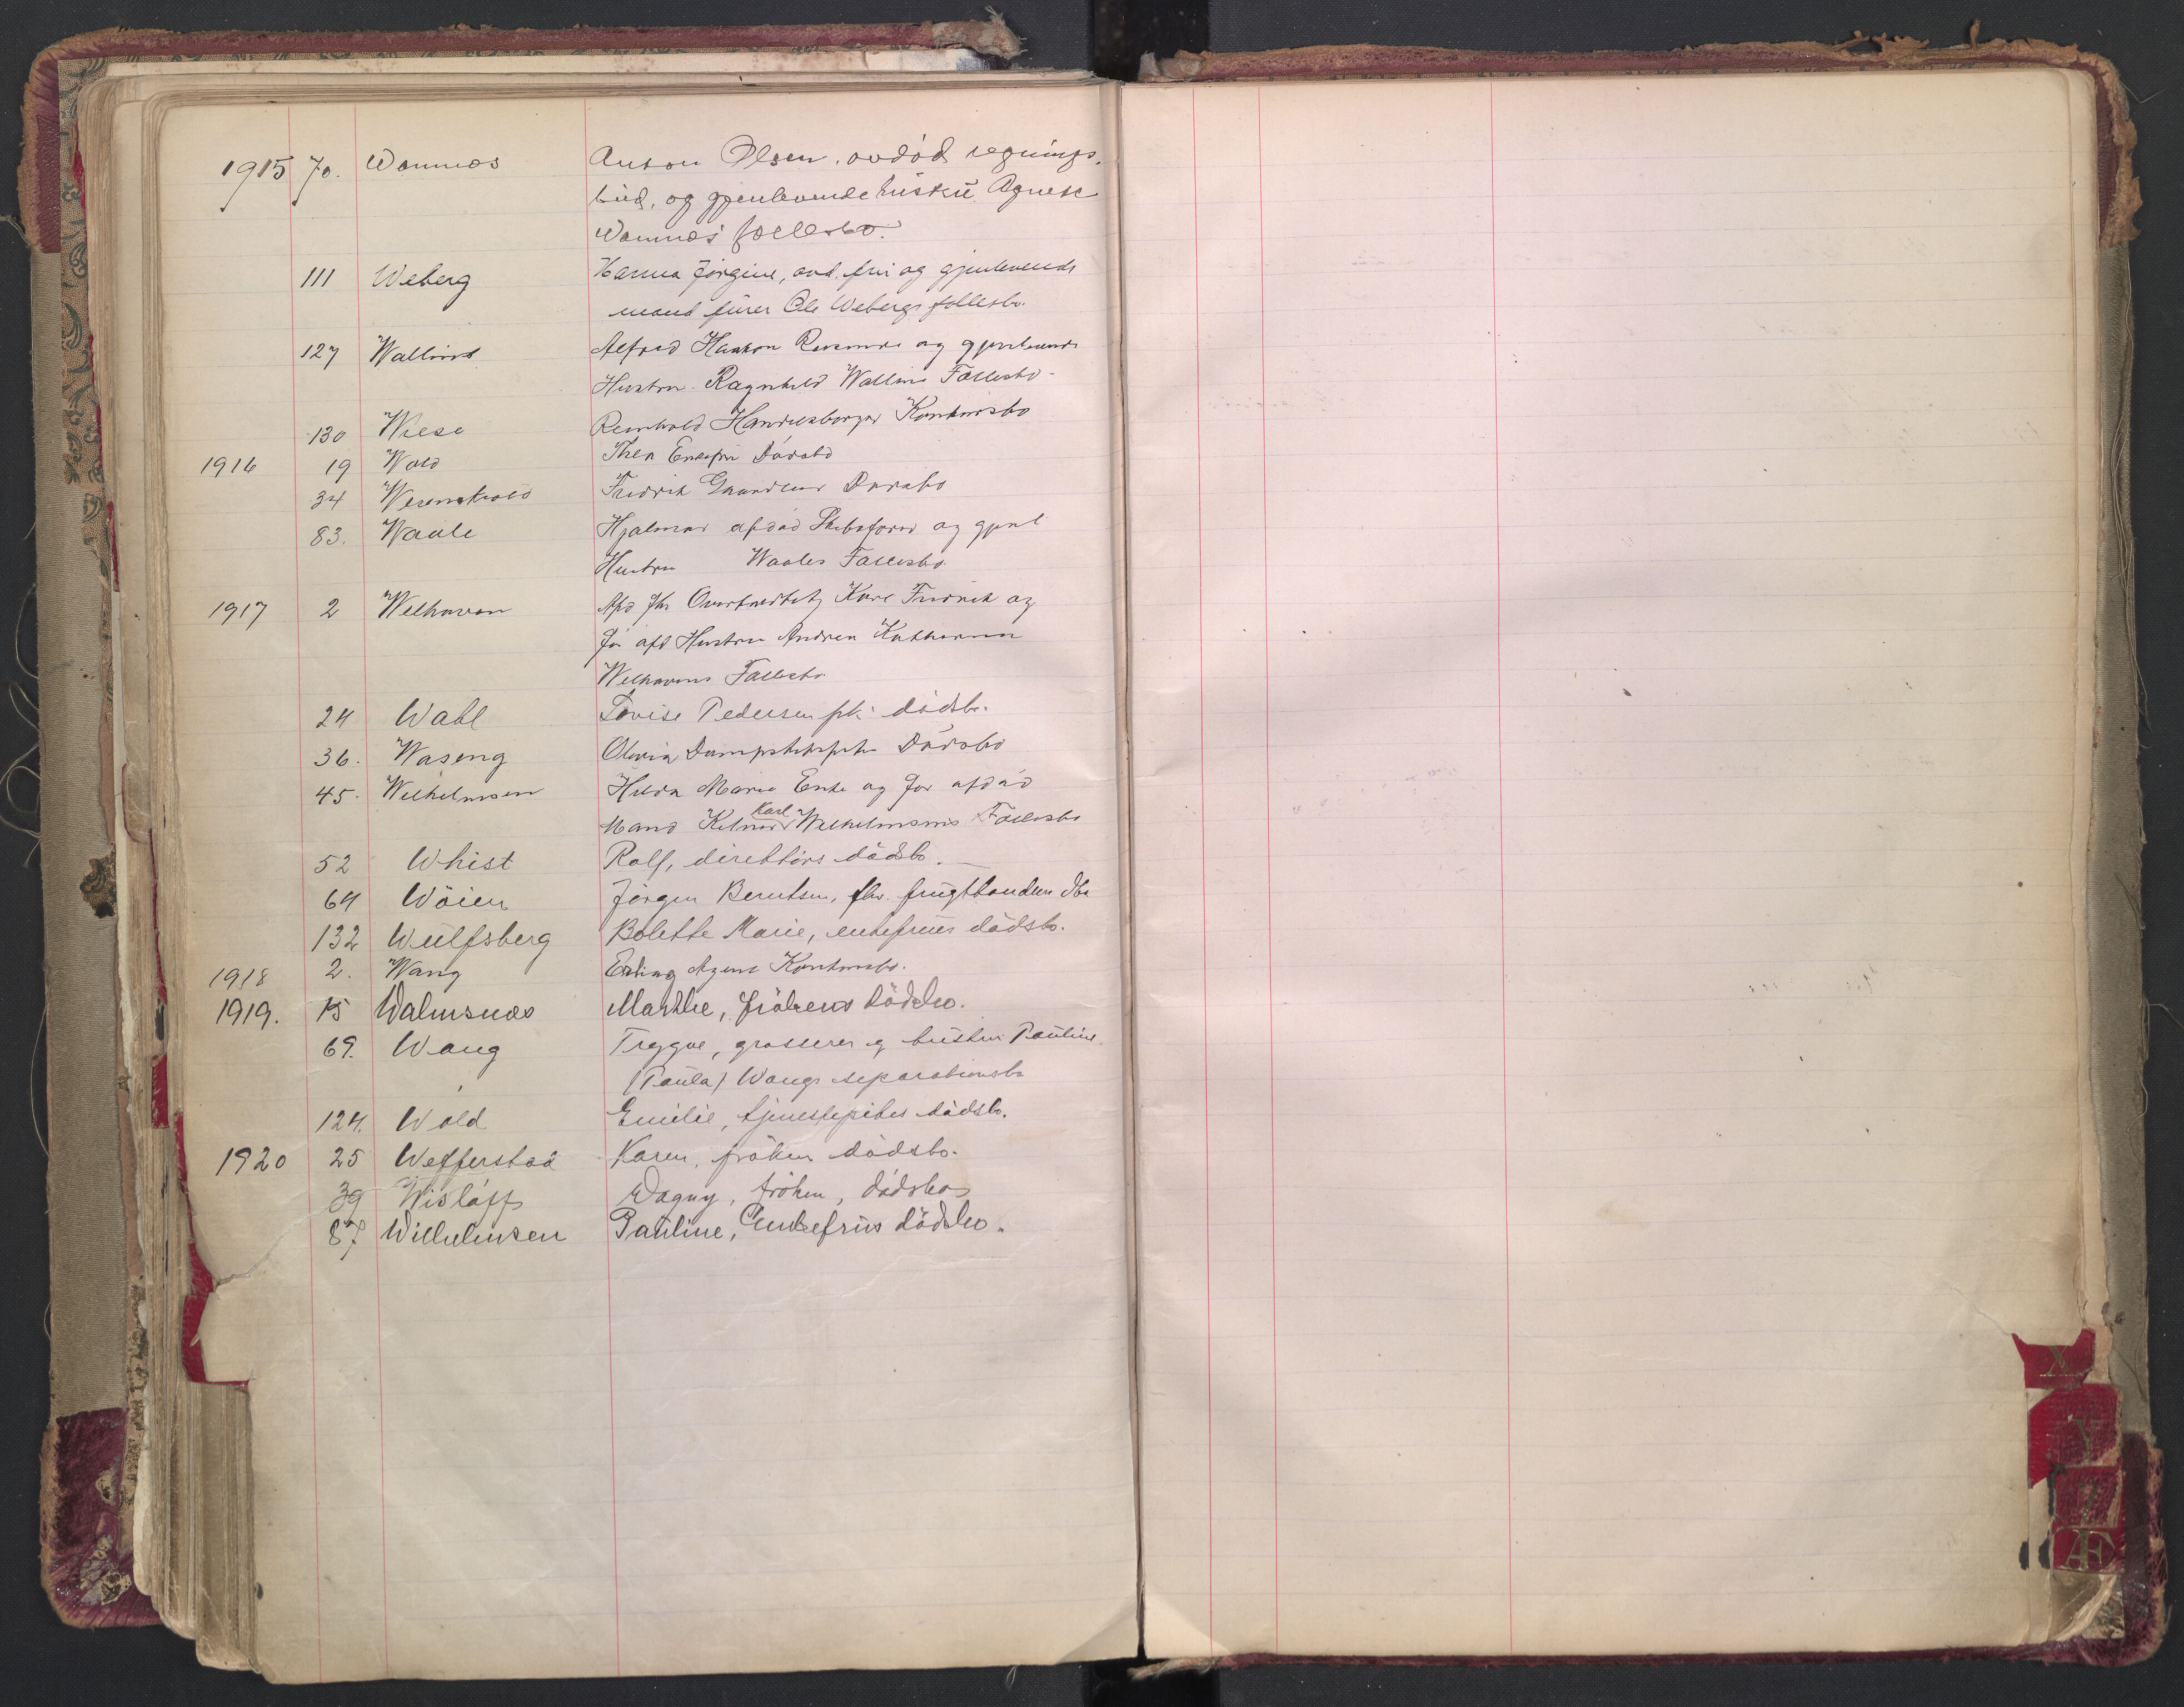 1915 70. Wamnæs Anton Olsen, avdød regnings-
bud, og gjenlevende hustru Agnete
Wamnæs fællesbo.
111 Weberg Hanna Jørgine, avd. frú og gjenlevende
mand fúrer Ole Webergs fællesbo.
127 Wallins Alfred Haakon og gjenlevende
Hustru Ragnhild Wallins Fællesbo
130 Wiese Reinhold Handelsborger Konkursbo
1916 19 Wold Thea Enkefru Dødsbo
34 Werenskiold Fredrik Granders Dødsbo
83. Waale Hjalmar afdød Skibsfører og gjenl
Hustru Waales Fællesbo.
1917 2 Welhaven Afd Karl Fredrik og
før afd Hustru Andrea Katharina
Welhavens Fællesbo
24 Wahl Lovise Pedersen frk. dødsbo.
36. Waseng Olivia Dødsbo
45. Wilhelmsen Hilda Marie Enke og før afdød
Mand Kelner Karl Wilhelmsens Fællesbo
52 Whist Rolf, direktørs dødsbo.
64 Wöien Jörgen Berntsen, fhv. frugthandlers dbo
132 Wulfsberg Bolette Marie, enkefrúes dødsbo.
1918 2. Wang Erling Agent Konkursbo.
1919. 15 Walmsnæs Marthe, frökens dödsbo.
69. Wang Trygve, grosserer og hústru Paúline
(Paúla) Wangs separationsbo
124. Wold Emilie, tjenestepikes dødsbo.
1920 25 Wefferstad Karen, fröken dödsbo.
39 Wisløff Dagny, fröken, dödsbo
87 Wilhelmsen Paúline, Enkefrús dödsbo.
X
Y
Z
Æ